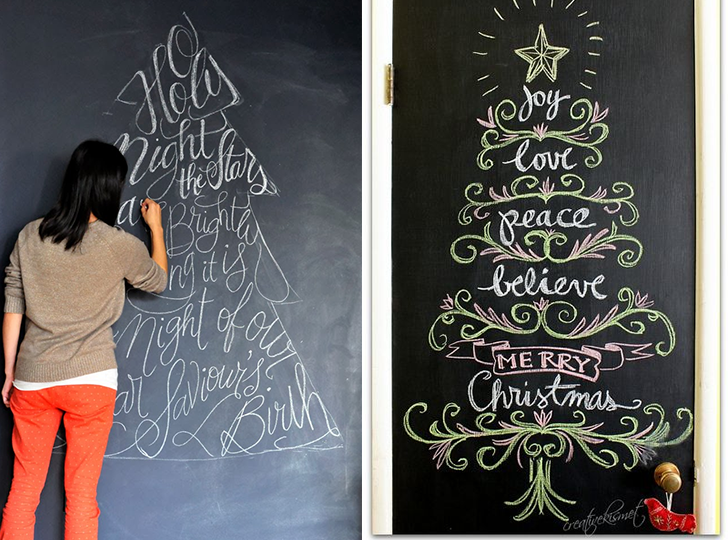 O
Holy
Night
the Stars
Brightly
ng it is
Night of our
ar Saviour's
Birth
Joy
love
peace
believe
MERRY
Christmas
creativekismet